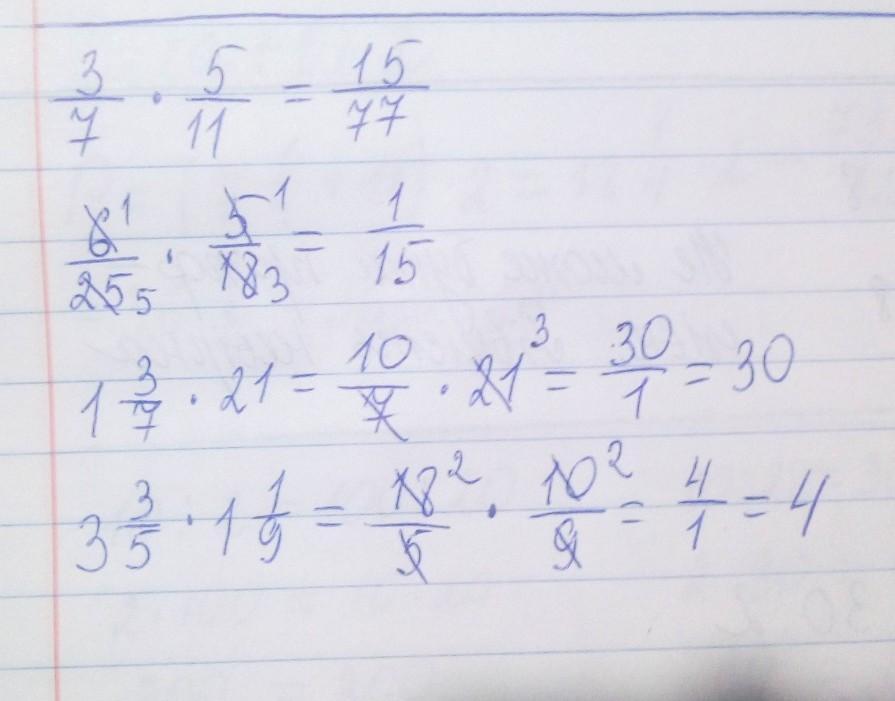 3/7 · 5/11 = 15/77
6 1/25 5 · 5 1/18 3 = 1/15
1 3/7 · 21 = 10/7 · 21 3 = 30/1 = 30
3 3/5 · 1 1/9 = 18 2/5 · 10 2/9 = 4/1 = 4